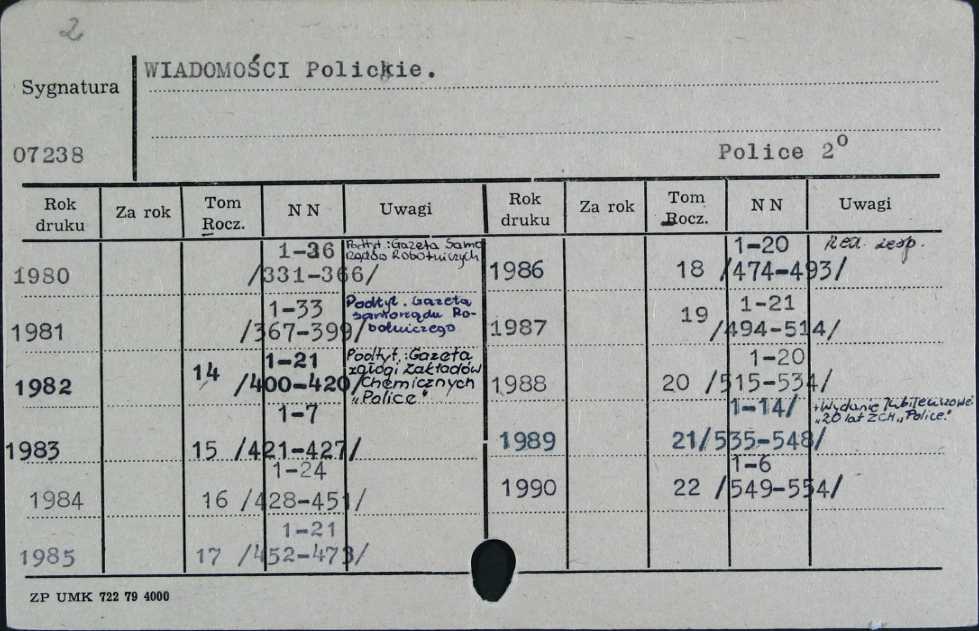 2
WIADOMOŚCI Polickie.
Sygnatura
07238
Police 2º
Rok druku Za rok Tom Rocz. N N Uwagi
1980 1-36 /331-366/ Podtyt.: Gazeta Samo
rządu Robotniczych
1981 1-33 /367-399/ Podtyt. Gazeta
samorządu Ro-
botniczego
1982 14 1-21 /400-420/ Podtyt.: Gazeta
załogi Zakładów
Chemicznych
"Police"
1983 15 1-7 /421-427/
1984 16 1-24 /428-451/
1985 17 1-21 /452-473/
Rok druku Za rok Tom Rocz. N N Uwagi
1986 18 1-20 /474-493/ Red. zesp.
1987 19 1-21 /494-514/
1988 20 1-20 /515-534/
1989 21 1-14/ /535-548/ + Wydanie Jubileuszowe
"20 lat ZCH "Police"
1990 22 1-6 /549-554/
ZP UMK 722 79 4000